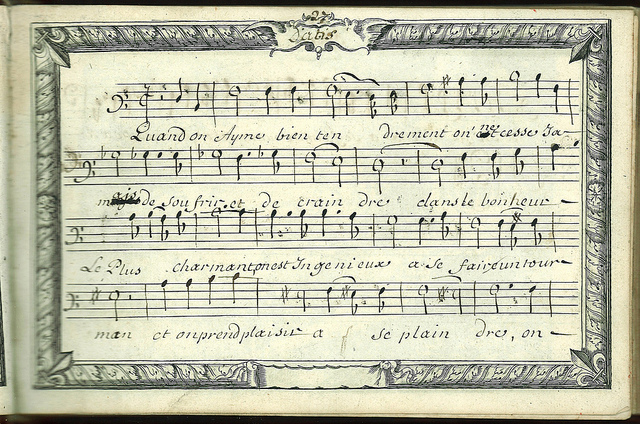 27
D'atis
Quand on Ayme bien ten drement on ne cesse Ja-
mais de souffrir et de crain dre dans le bonheur
Le Plus charmant on est Ingenieux a se faire un tour-
man et on prend plaisir a se plain dre, on